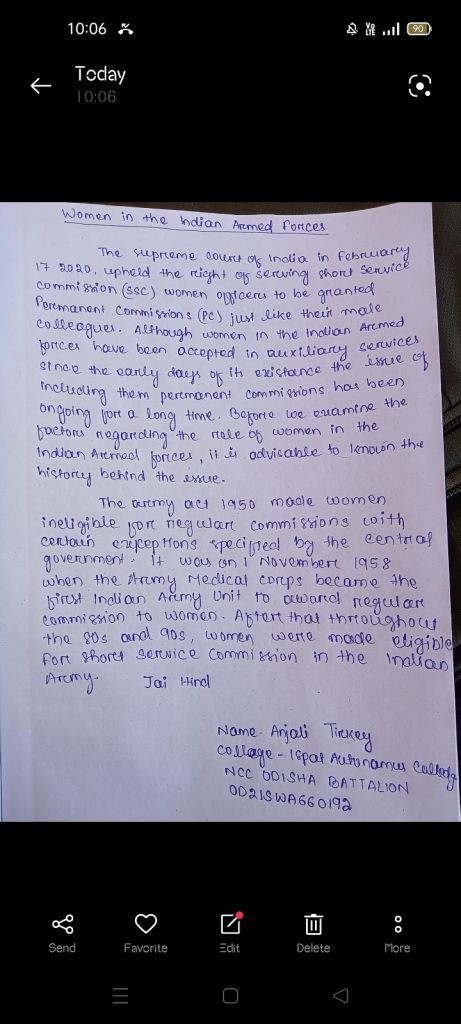 10:06
Vo
LTE
90
Today
10:06
Women in the Indian Armed Forces
The supreme court of India in February
17 2020, upheld the right of serving short service
commission (SSC) women officers to be granted
Permanent Commissions (PC) just like their male
colleagues. Although women in the Indian Armed
forces have been accepted in auxiliary services
since the early days of its existance the issue of
including them permanent commissions has been
ongoing for a long time. Before we examine the
factors regarding the role of women in the
Indian Armed forces, it is advisable to known the
history behind the issue.
The army act 1950 made women
ineligible for regular commissions with
certain exceptions specified by the central
government. It was on 1 November 1958
when the Army Medical corps became the
first Indian Army Unit to award regular
commission to women. After that throughout
the 80s and 90s, women were made eligible
for short service commission in the Indian
Army. Jai Hind
Name- Anjali Tirkey
collage - Ispat Autonamus
NCC ODISHA BATTALION
OD21SWA660192
Send
Favorite
Edit
Delete
More